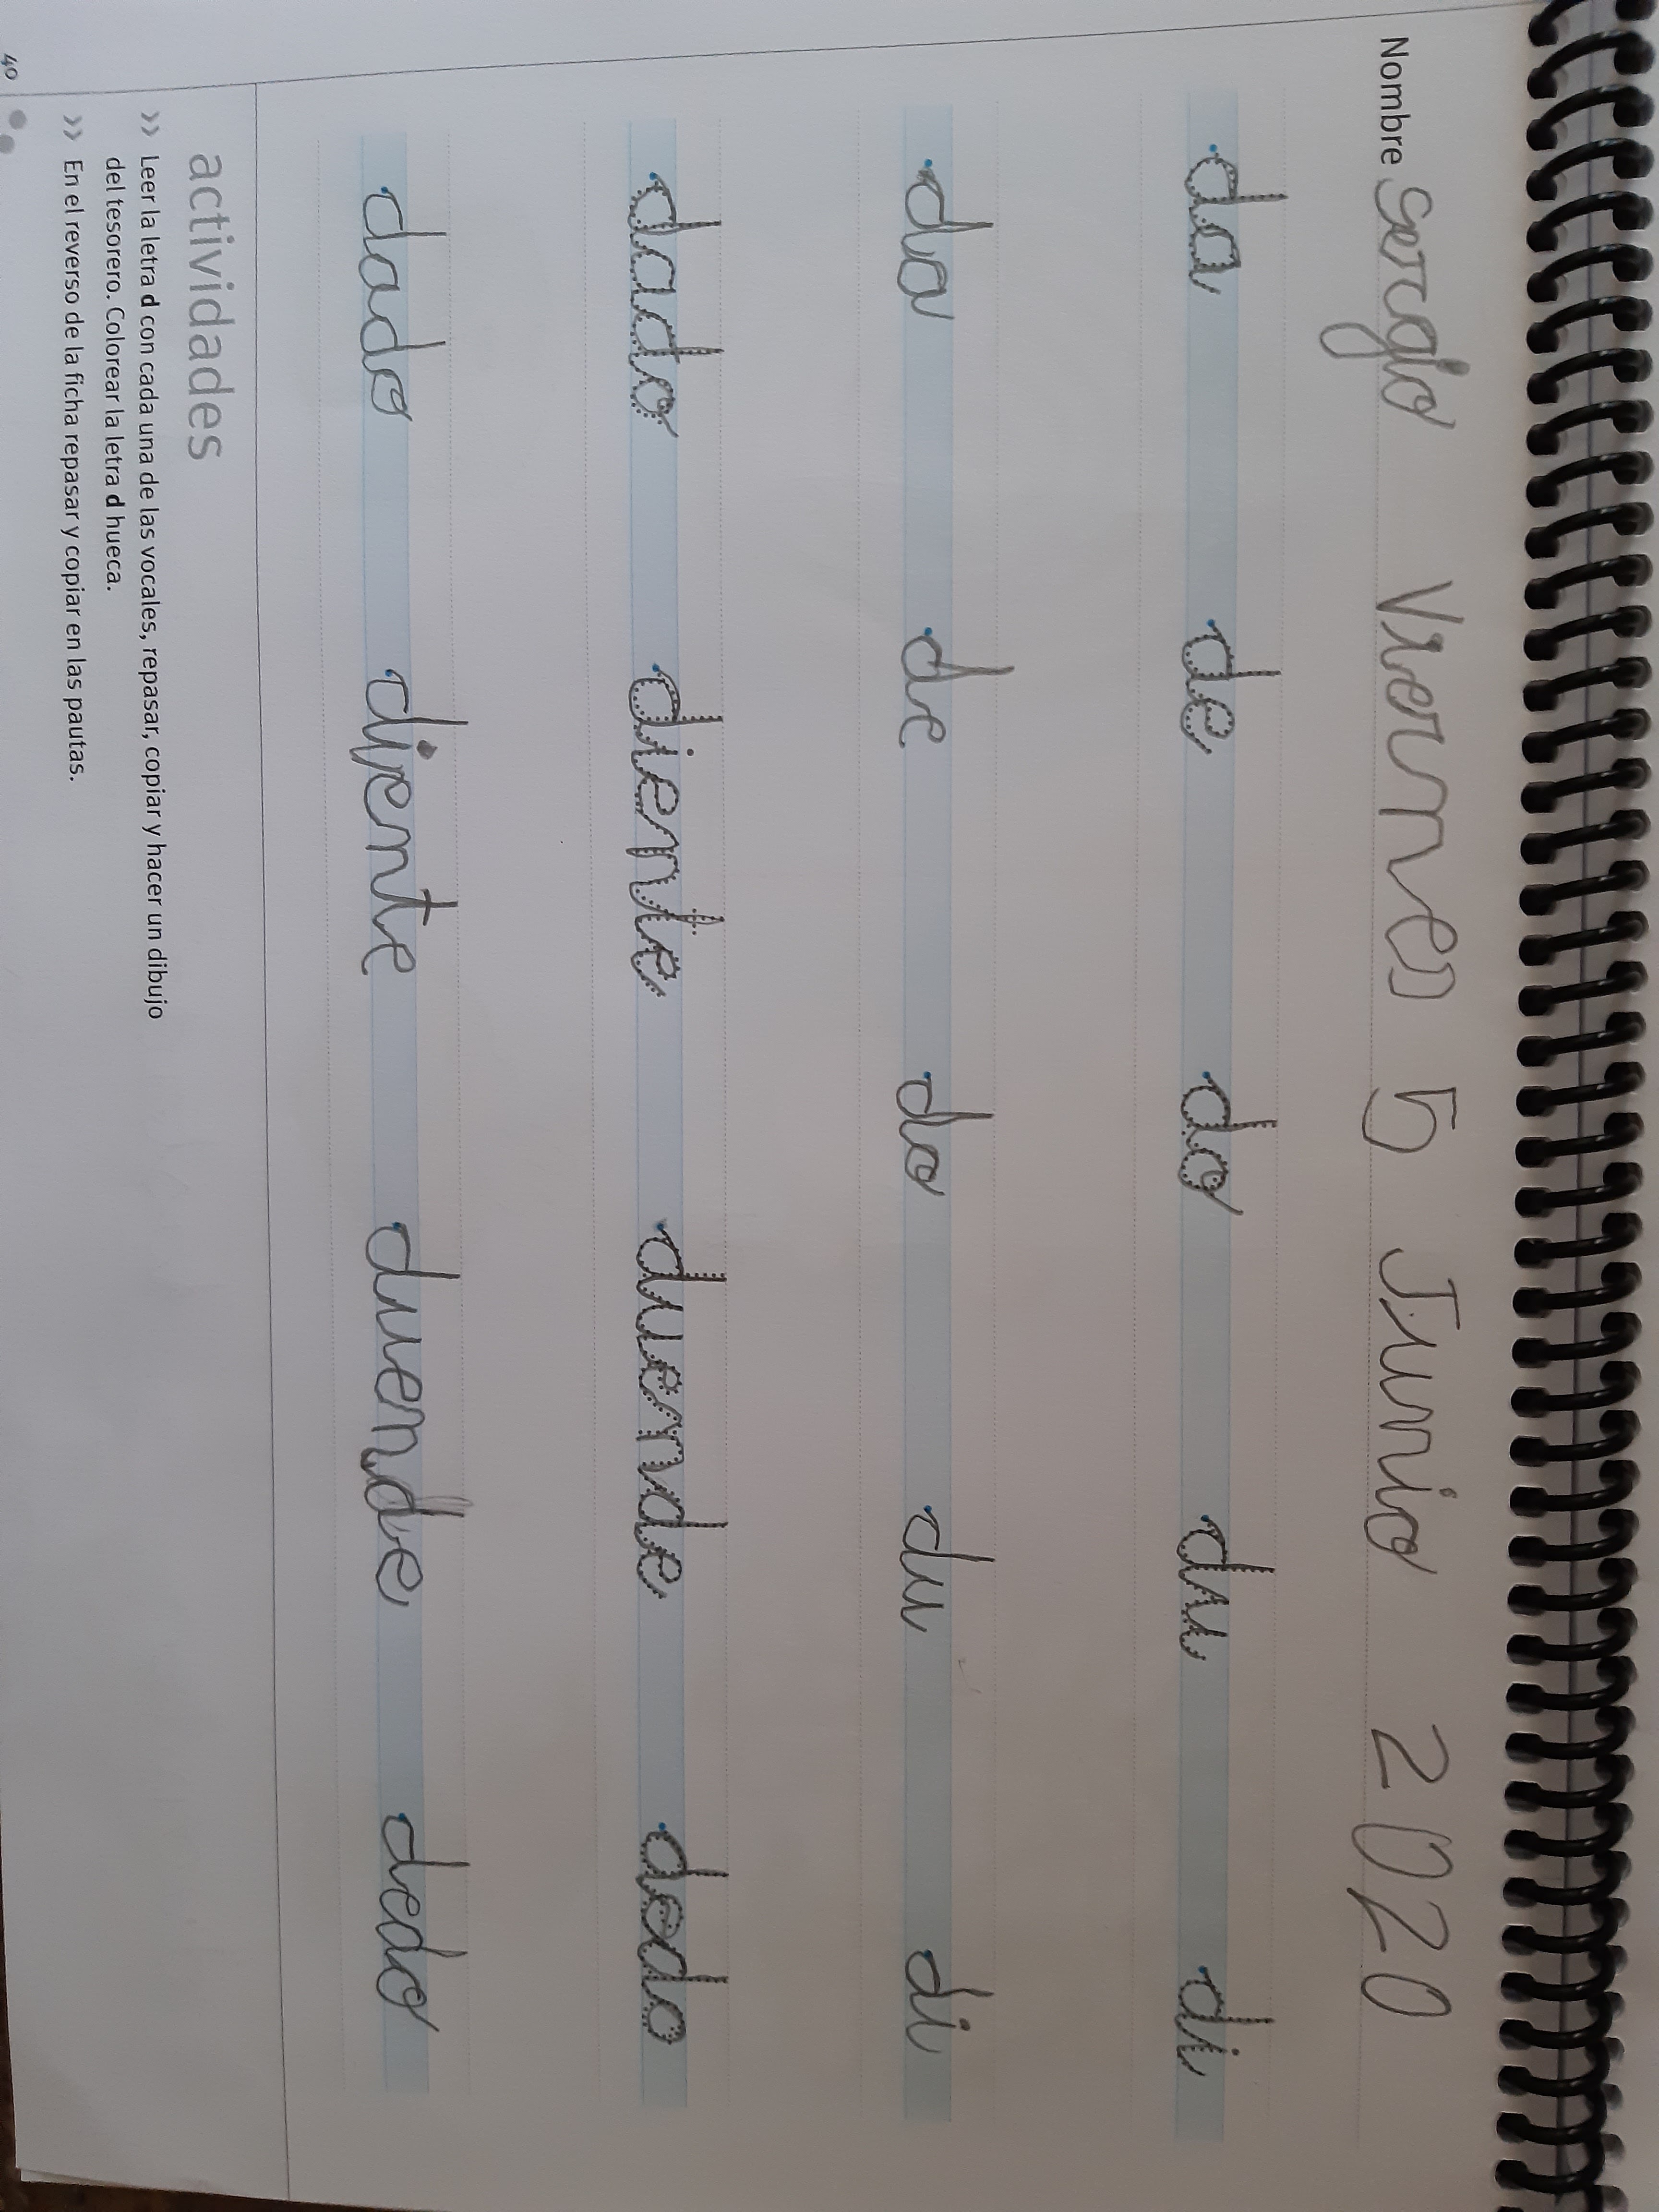 Nombre Sergio Viernes 5 Junio 2020
da de do du di
da de do du di
dado diente duende dedo
dado diente duende dedo
actividades
›› Leer la letra d con cada una de las vocales, repasar, copiar y hacer un dibujo
del tesorero. Colorear la letra d hueca.
›› En el reverso de la ficha repasar y copiar en las pautas.
40